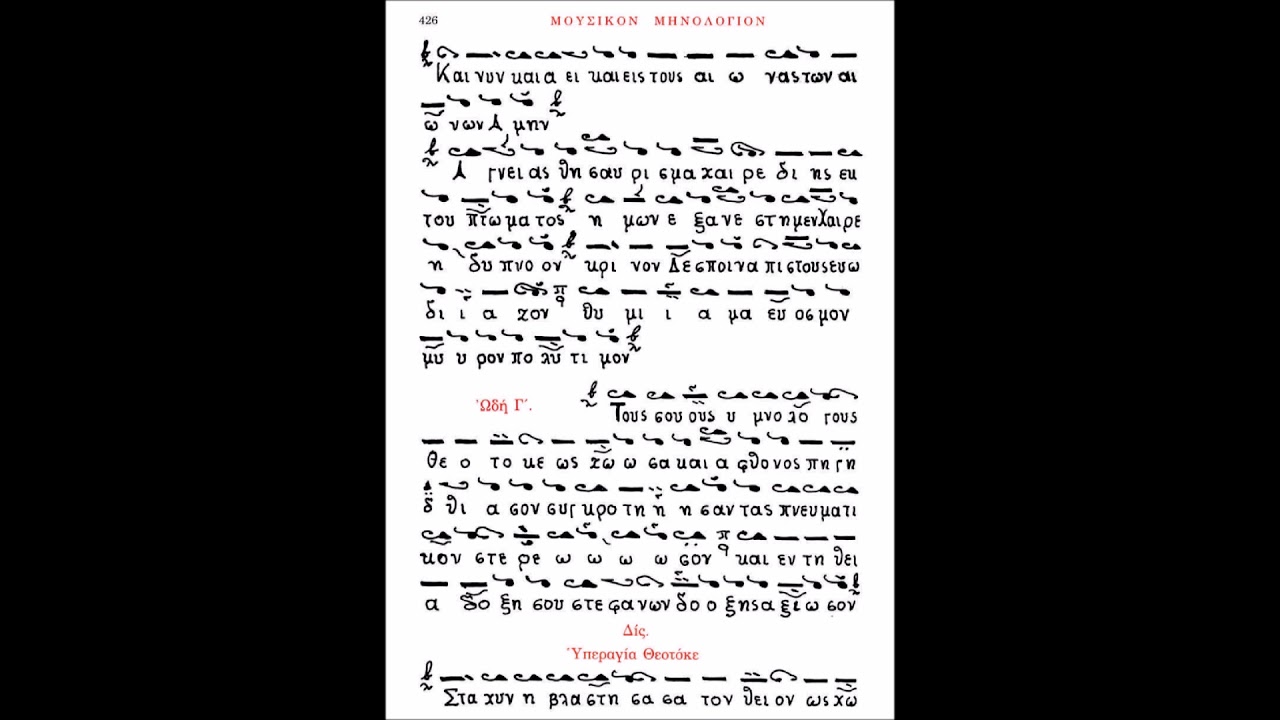 426 ΜΟΥΣΙΚΟΝ ΜΗΝΟΛΟΓΙΟΝ
Και νυν και α ει και εις τους αι ω νας των αι
ω νων Α μην
Α γνει ας θη σαυ ρι σμα χαι ρε δι ης εκ
του πτω μα τος η μων ε ξα νε στη μεν Χαι ρε
η δυ πνο ον κρι νον Δε σποι να πι στους ευ ω
δι ι α ζον θυ μι ι α μα ευ οσ μον
μυ υ ρον πο λυ τι μον
Ὠδή Γ΄. Τους σου ους υ μνο λο γους
θε ο το κε ως ζω ω σα και α φθο νος πη γη
δ θι α σον συγ κρο τη η η σαν τας πνευ μα τι
κον στε ρε ω ω ω ω σον και εν τη θει
α δο ξη σου στε φα νων δο ο ξης α ξι ω σον
Δίς.
Ὑπεραγία Θεοτόκε
Στα χυν η βλα στη σα σα τον θει ον ως χω